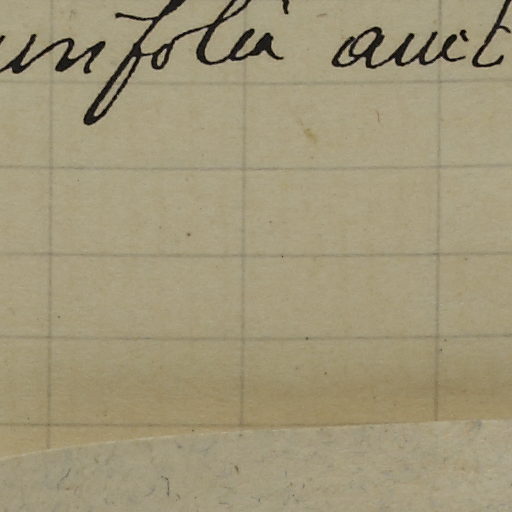 unifolia auct